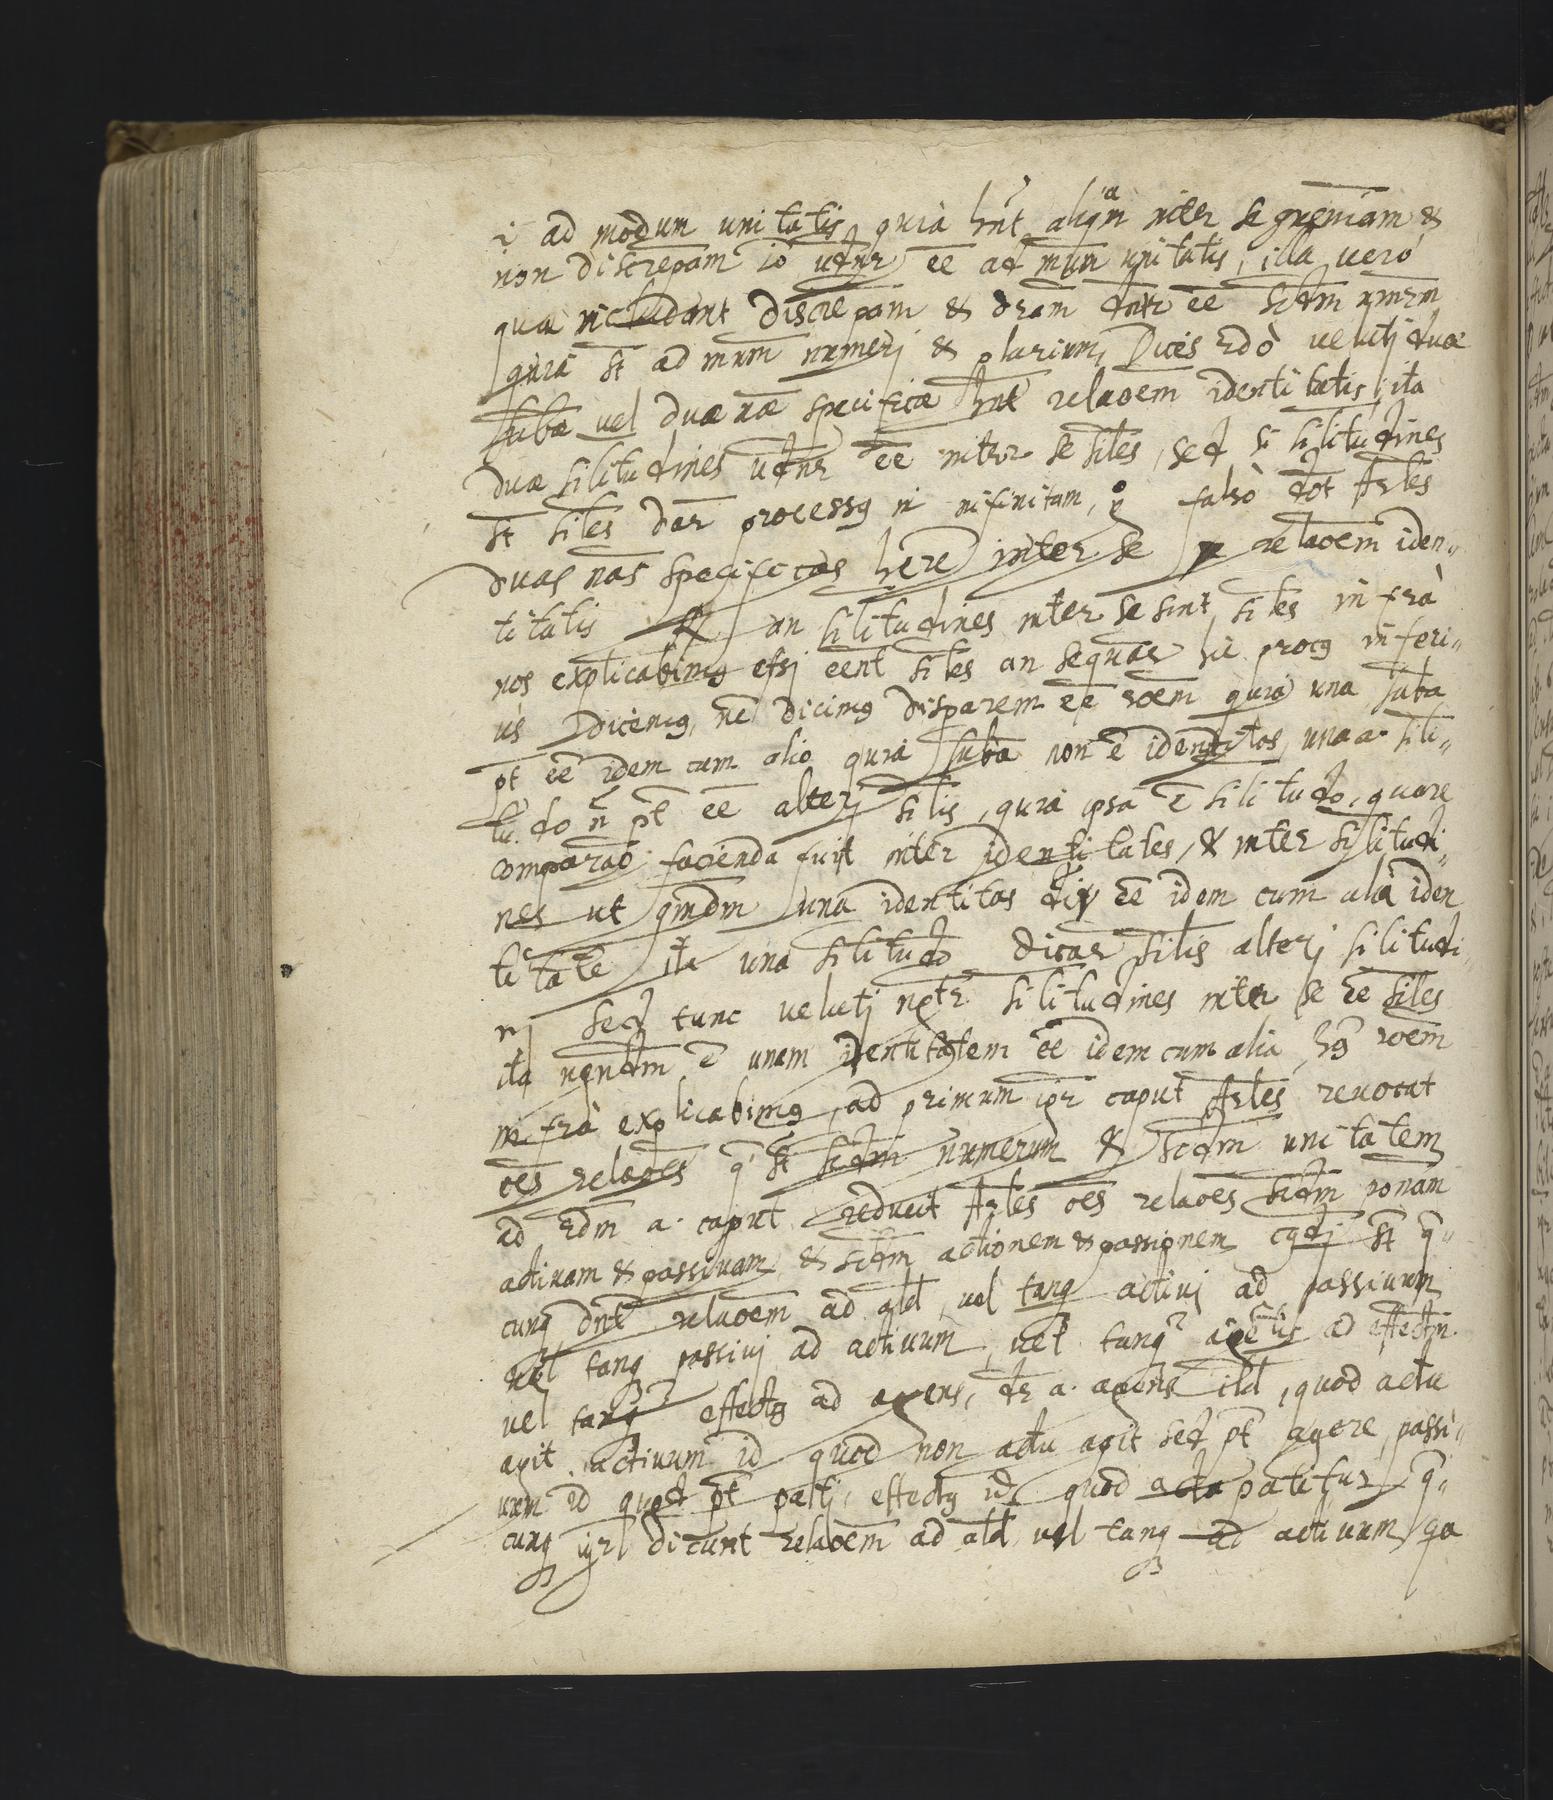 i ad modum unitatis, quia hñt aliqm inter se gueniam &
non discrepam iò udnr ee ad mum unitatis, illa uerò
quæ includunt discrepam & dram dntr ee scdm nmrm
quia st ad mum numeri & plurium, Dices 2dò ueluti duæ
subæ uel duæ næ specificæ hnt relaoem identitatis, ita
duæ silitudines udnr ee inter se siles, sed si silitudines
st siles dar processg in infinitum, g falsò dot Arles
duas nas specificas here inter se relaoem iden„
titatis R an silitudines inter se sint siles infrà
nos explicabimg etsi eent siles an sequar hic procg inferi„
us dicemg, nc dicimg disparem ee roem quia una suba
pt ee idem cum alio quia suba non e identitas, una a. sili„
tudo n pt ee alteri silis, quia ipsa e silitudo, quare
comparao facienda fuit inter identitates, & inter silitudi„
nes ut qmdm una identitas dir ee idem cum alia iden
titate ita una silitudo dicar silis alteri silitudi„
ni sed tunc ueluti nptr silitudines inter se ee siles
ita ngndm e unam identitatem ee idem cum alia, hg roem
infrà explicabimg, ad primum igr caput Arles reuocat
oes relaoes q st scdm numerum & scdm unitatem
ad 2dm a. caput reducit Arles oes relaoes scdm ponam
actiuam & passiuam & scdm actionem & passionem cqdi st q„
cunq dnt relaoem ad ald, uel tanq actiui ad passiuum
uel tanq passiui ad actiuum, uel tanq ad effectm
uel tanq effectg ad agens, dr a. agens ild, quod actu
agit, actiuum id quod non actu agit sed pt agere, passi„
uum id quod pt pati, effectg id quod actu patitur, q„
cunq igr dicunt relaoem ad ald uel tanq ad actiuum qa